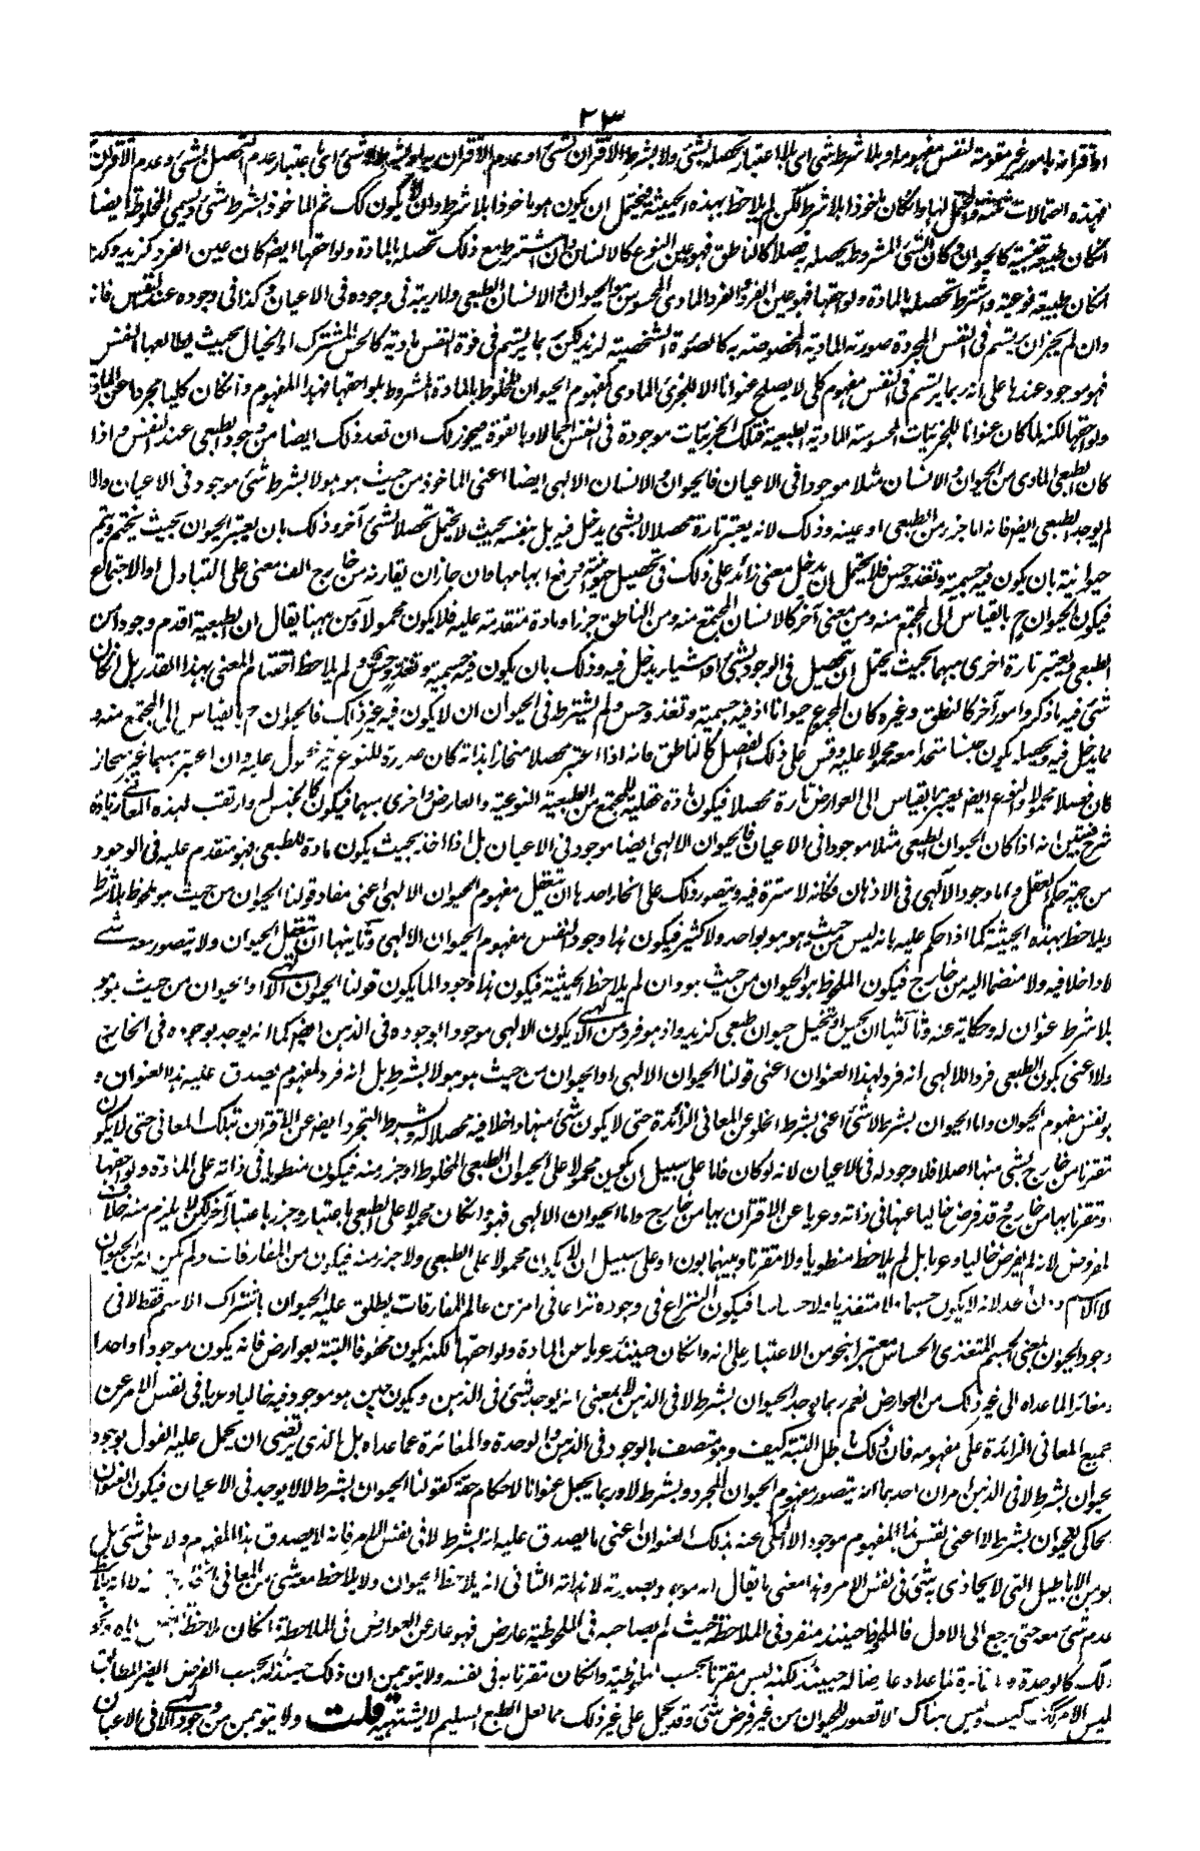 ٢٣
او اقترانه بامور غير مقومة لنفس مفهومه او بلا شرط شئ اى لا باعتبار تحصله بشئ ولا بشرط الاقتران بشئ او عدم الاقتران به او بشرط لا شئ اى باعتبار عدم التحصل بشئ وعدم الاقتران
فهذه احتمالات ثلثة وان كان ماخوذا بلا شرط لكن لم يلاحظ بهذه الحيثية فيحتمل ان يكون هو ماخوذا بلا شرط وان لا يكون كذلك ثم الماخوذ بشرط شئ ويسمى المخلوط ايضا
ان كان طبيعة جنسية كالحيوان وكان الشئ المشروط تحصله به فصلا كالناطق فهو عين النوع كالانسان وان اشترط مع ذلك تحصله بالمادة ولواحقها ايضا كان عين الفرد كزيد وكذا
ان كان طبيعة نوعية واشترط تحصله بالمادة ولواحقها فهو عين الفرد والفرد المادى المحسوس هو الحيوان والانسان الطبيعى ولا ريبة فى وجوده فى الاعيان وكذا فى وجوده عند النفس فانه
وان لم يجز ان يرتسم فى النفس المجردة صورته المادية المخصوصة به كالصورة الشخصية لزيد لكن ربما يرتسم فى قوة النفس مادية كالحس المشترك او الخيال بحيث يطالعها النفس
فهو موجود عندها على انه ربما يرتسم فى النفس مفهوم كلى لا يصلح عنوانا الا للجزئى المادى كمفهوم الحيوان المخلوط بالمادة المشروط بلواحقها فهذا المفهوم وان كان كليا مجردا عن المادة
ولواحقها لكنه لما كان عنوانا للجزئيات المحسوسة المادية الطبيعية فتلك الجزئيات موجودة فى النفس اجمالا او بالقوة فيجوز لك ان تعد ذلك ايضا من وجود الطبيعى عند النفس واذا
كان الطبيعى المادى من الحيوان والانسان مثلا موجودا فى الاعيان فالحيوان والانسان الالهى ايضا اعنى الماخوذ من حيث هو هو لا بشرط شئ موجود فى الاعيان والا
لم يوجد الطبيعى ايضا فانه اما جزء من الطبيعى او عينه وذلك لانه يعتبر تارة محصلا لا بشئ يدخل فيه بل بنفسه بحيث لا يحتمل تحصلا بشئ آخر وذلك بان يعتبر الحيوان بحيث يختتم ويتم
حيوانيته بان يكون فيه جسمية وتغذ وحس فلا يحتمل ان يدخل معنى زائد على ذلك فى تحصيل حيوانيته ورفع ابهامها وان جاز ان يقارنه من خارج الف معنى على التبادل او الاجتماع
فيكون الحيوان ح بالقياس الى المجتمع منه ومن معنى آخر كالانسان المجتمع منه ومن الناطق جزءا ومادة متقدمة عليه فلا يكون محمولا ومن ههنا يقال ان الطبيعية اقدم وجودا من
الطبعى ويعتبر تارة اخرى مبهما بحيث يحتمل ان يتحصل فى الوجود بشئ او اشياء يدخل فيه وذلك بان يكون فيه جسمية وتغذ وحس ولم يلاحظ اختتام المعنى بهذا القدر بل ان كان
شئ فيه ما ذكر وامور آخر كالنطق وغيره كان المجموع حيوانا اذ فيه جسمية وتغذ وحس ولم يشترط فى الحيوان ان لا يكون فيه غير ذلك فالحيوان ح بالقياس الى المجتمع منه و
مما يدخل فيه ويحصله يكون جنسا متحدا معه محمولا عليه وقس على ذلك الفصل كالناطق فانه اذا اعتبر محصلا منحازا بذاته كان صورة للنوع غير محمول عليه وان اعتبر مبهما غير منحاز
كان فصلا محمولا والنوع ايضا يعتبر بالقياس الى العوارض تارة محصلا فيكون مادة عقلية للمجتمع من الطبيعة النوعية والعارض واخرى مبهما فيكون كالجنس له وارتقب لهذه المعانى زيادة
شرح فتبين انه اذا كان الحيوان الطبيعى مثلا موجودا فى الاعيان فالحيوان الالهى ايضا موجود فى الاعيان بل اذا اخذ بحيث يكون مادة للطبيعى فهو متقدم عليه فى الوجود
من جهة حكم العقل واما وجود الآلهى فى الاذهان فكانه لا سترة فيه ويتصور ذلك على انحاء احدها ان يتعقل مفهوم الحيوان الالهى اعنى مفاد قولنا الحيوان من حيث هو ملحوظ بلا شرط
ويلاحظ بهذه الحيثية كما اذا حكم عليه بانه ليس من حيث هو هو بواحد ولا كثير فيكون هذا وجود النفس مفهوم الحيوان الالهى وثانيها ان يتعقل الحيوان ولا يتصور معه شئ
لا داخلا فيه ولا منضما اليه من خارج فيكون الملحوظ هو الحيوان من حيث هو وان لم يلاحظ الحيثية فيكون هذا وجودا لما يكون قولنا الحيوان الالهى او الحيوان من حيث هو هو
بلا شرط عنوان له وحكاية عنه وثالثها ان يحس او يتخيل حيوان طبعى كزيد واذ هو فرد من الالهى يكون الالهى موجودا بوجوده فى الذهن ايضا كما انه يوجد بوجوده فى الخارج
ولا اعنى بكون الطبيعى فردا للالهى انه فرد لهذا العنوان اعنى قولنا الحيوان الالهى او الحيوان من حيث هو هو لا بشرط بل انه فرد لمفهوم يصدق عليه هذا العنوان و
هو نفس مفهوم الحيوان واما الحيوان بشرط لا شئ اعنى بشرط الخلو عن المعانى الزائدة حتى لا يكون شئ منها داخلا فيه محصلا له وبشرط التجرد ايضا عن الاقتران بتلك المعانى حتى لا يكون
مقترنا من خارج بشئ منها اصلا فلا وجود له فى الاعيان لانه لو كان فاما على سبيل ان يكون محمولا على الحيوان الطبيعى المخلوط او جزء منه فيكون منطويا فى ذاته على المادة ولواحقها
ومقترنا بها من خارج وقد فرض خاليا عنها فى ذاته وعريا عن الاقتران بها من خارج واما الحيوان الالهى فهو وان كان محمولا على الطبعى باعتبار وجزءا باعتبار آخر لكن لا يلزم منه خلاف
المفروض لانه لم يفرض خاليا وعريا بل لم يلاحظ منطويا ولا مقترنا وبينهما بون او على سبيل ان لا يكون محمولا على الطبعى ولا جزء منه فيكون من المفارقات ولم يكن له من الحيوان
الا الاسم لانه لا يكون جسما ولا متغذيا ولا حساسا فيكون النزاع فى وجوده نزاعا فى امر من عالم المفارقات يطلق عليه الحيوان باشتراك الاسم فقط لا فى
وجود الحيوان بمعنى الجسم المتغذى الحساس معتبر انحو من الاعتبار على انه وان كان حينئذ عريا عن المادة ولواحقها لكنه يكون محفوفا البتة بعوارض فانه يكون موجودا واحدا
ومغائرا لما عداه الى غير ذلك من العوارض نعم ربما يوجد الحيوان بشرط لا فى الذهن لا بمعنى انه يوجد شئ فى الذهن ويكون حين هو موجود فيه خاليا وعريا فى نفس الامر عن
جميع المعانى الزائدة على مفهومه فان ذلك باطل البتة كيف وهو متصف بالوجود فى الذهن والوحدة والمغائرة عما عداه بل الذى يرتضى ان يحمل عليه القول بوجود
الحيوان بشرط لا فى الذهن امران احدهما انه يتصور مفهوم الحيوان المجرد وبشرط لا وربما يجعل عنوانا لاحكام حقة كقولنا الحيوان بشرط لا لا يوجد فى الاعيان فيكون العنوان
الحاكى للحيوان بشرط لا اعنى نفس هذا المفهوم موجودا لا المحكى عنه بذلك العنوان اعنى ما يصدق عليه انه بشرط لا فى نفس الامر فانه لا يصدق هذا المفهوم ولا على شئ بل
هو من الاباطيل التى لا يحاذى بشئ فى نفس الامر وهذا معنى ما يقال انه موجود بصورته لا بذاته الثانى انه يلاحظ الحيوان ولا يلاحظ معه شئ من المعانى
عدم شئ معه حتى يرجع الى الاول فالملحوظ حينئذ منفرد فى الملاحظة حيث لم يصاحبه فى الملحوظية عارض فهو عار عن العوارض فى الملاحظة وان كان ملاحظا
ذلك كالوحدة و لما عداه عارضا له حينئذ لكنه ليس مقترنا بحسب الملحوظية وان كان مقترنا به فى نفسه ولا يتوهمن ان ذلك حينئذ له بحسب الفرض الغير المطابق
ليس الامر كذلك كيف وليس هناك الا تصور للحيوان من غير فرض شئ وقد يحمل على غير ذلك مما لعل الطبع السليم لا يشتهيه قلت ولا يتوهمن من وجود الالهى لا فى الاعيان